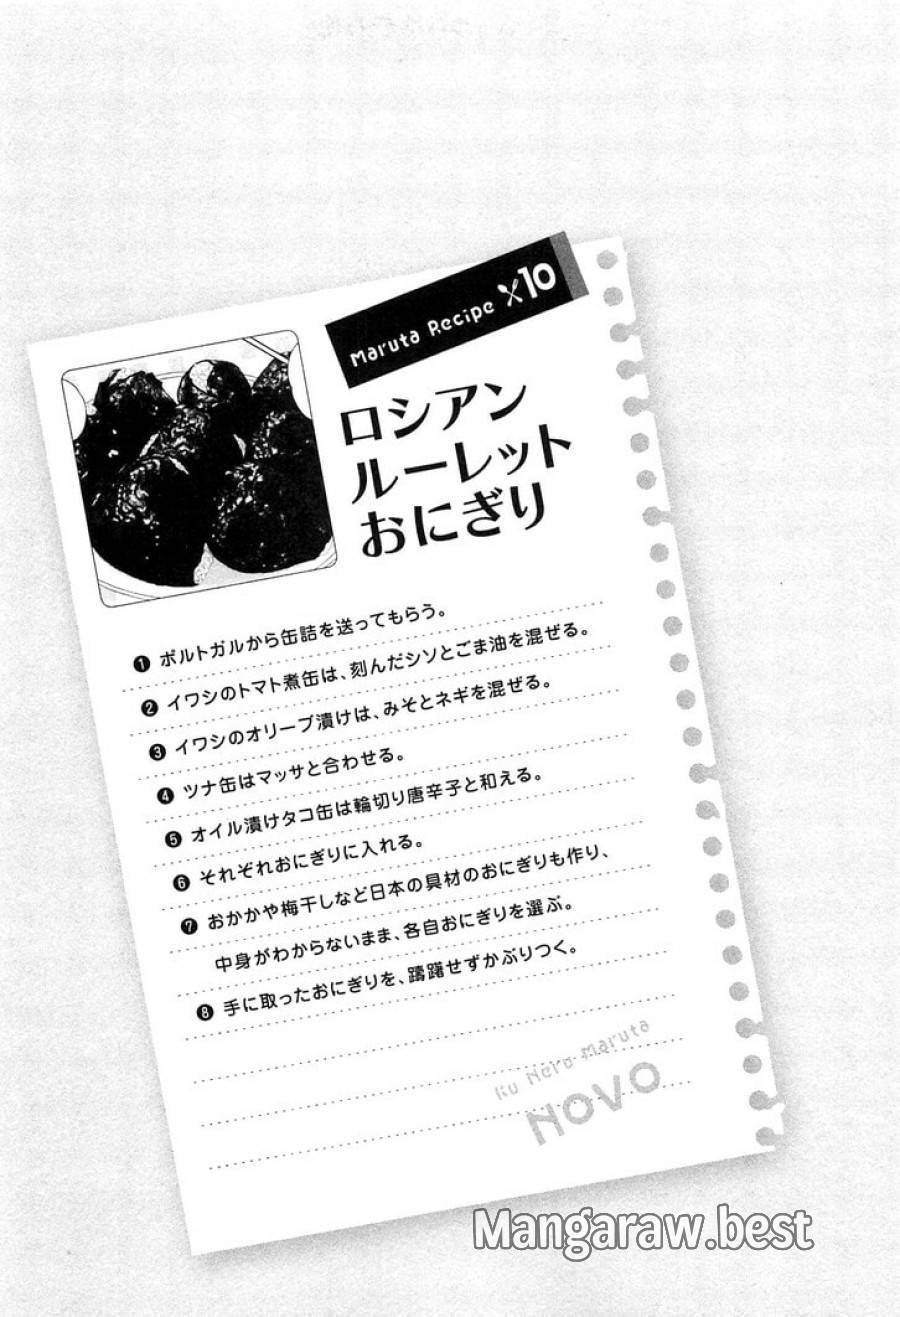 Maruta Recipe 10
ロシアン
ルーレット
おにぎり
❶ ポルトガルから缶詰を送ってもらう。
❷ イワシのトマト煮缶は、刻んだシソとごま油を混ぜる。
❸ イワシのオリーブ漬けは、みそとネギを混ぜる。
❹ ツナ缶はマッサと合わせる。
❺ オイル漬けタコ缶は輪切り唐辛子と和える。
❻ それぞれおにぎりに入れる。
❼ おかかや梅干しなど日本の具材のおにぎりも作り、
中身がわからないまま、各自おにぎりを選ぶ。
❽ 手に取ったおにぎりを、躊躇せずかぶりつく。
Iku Hero Maruta
NOVO
Mangaraw.best